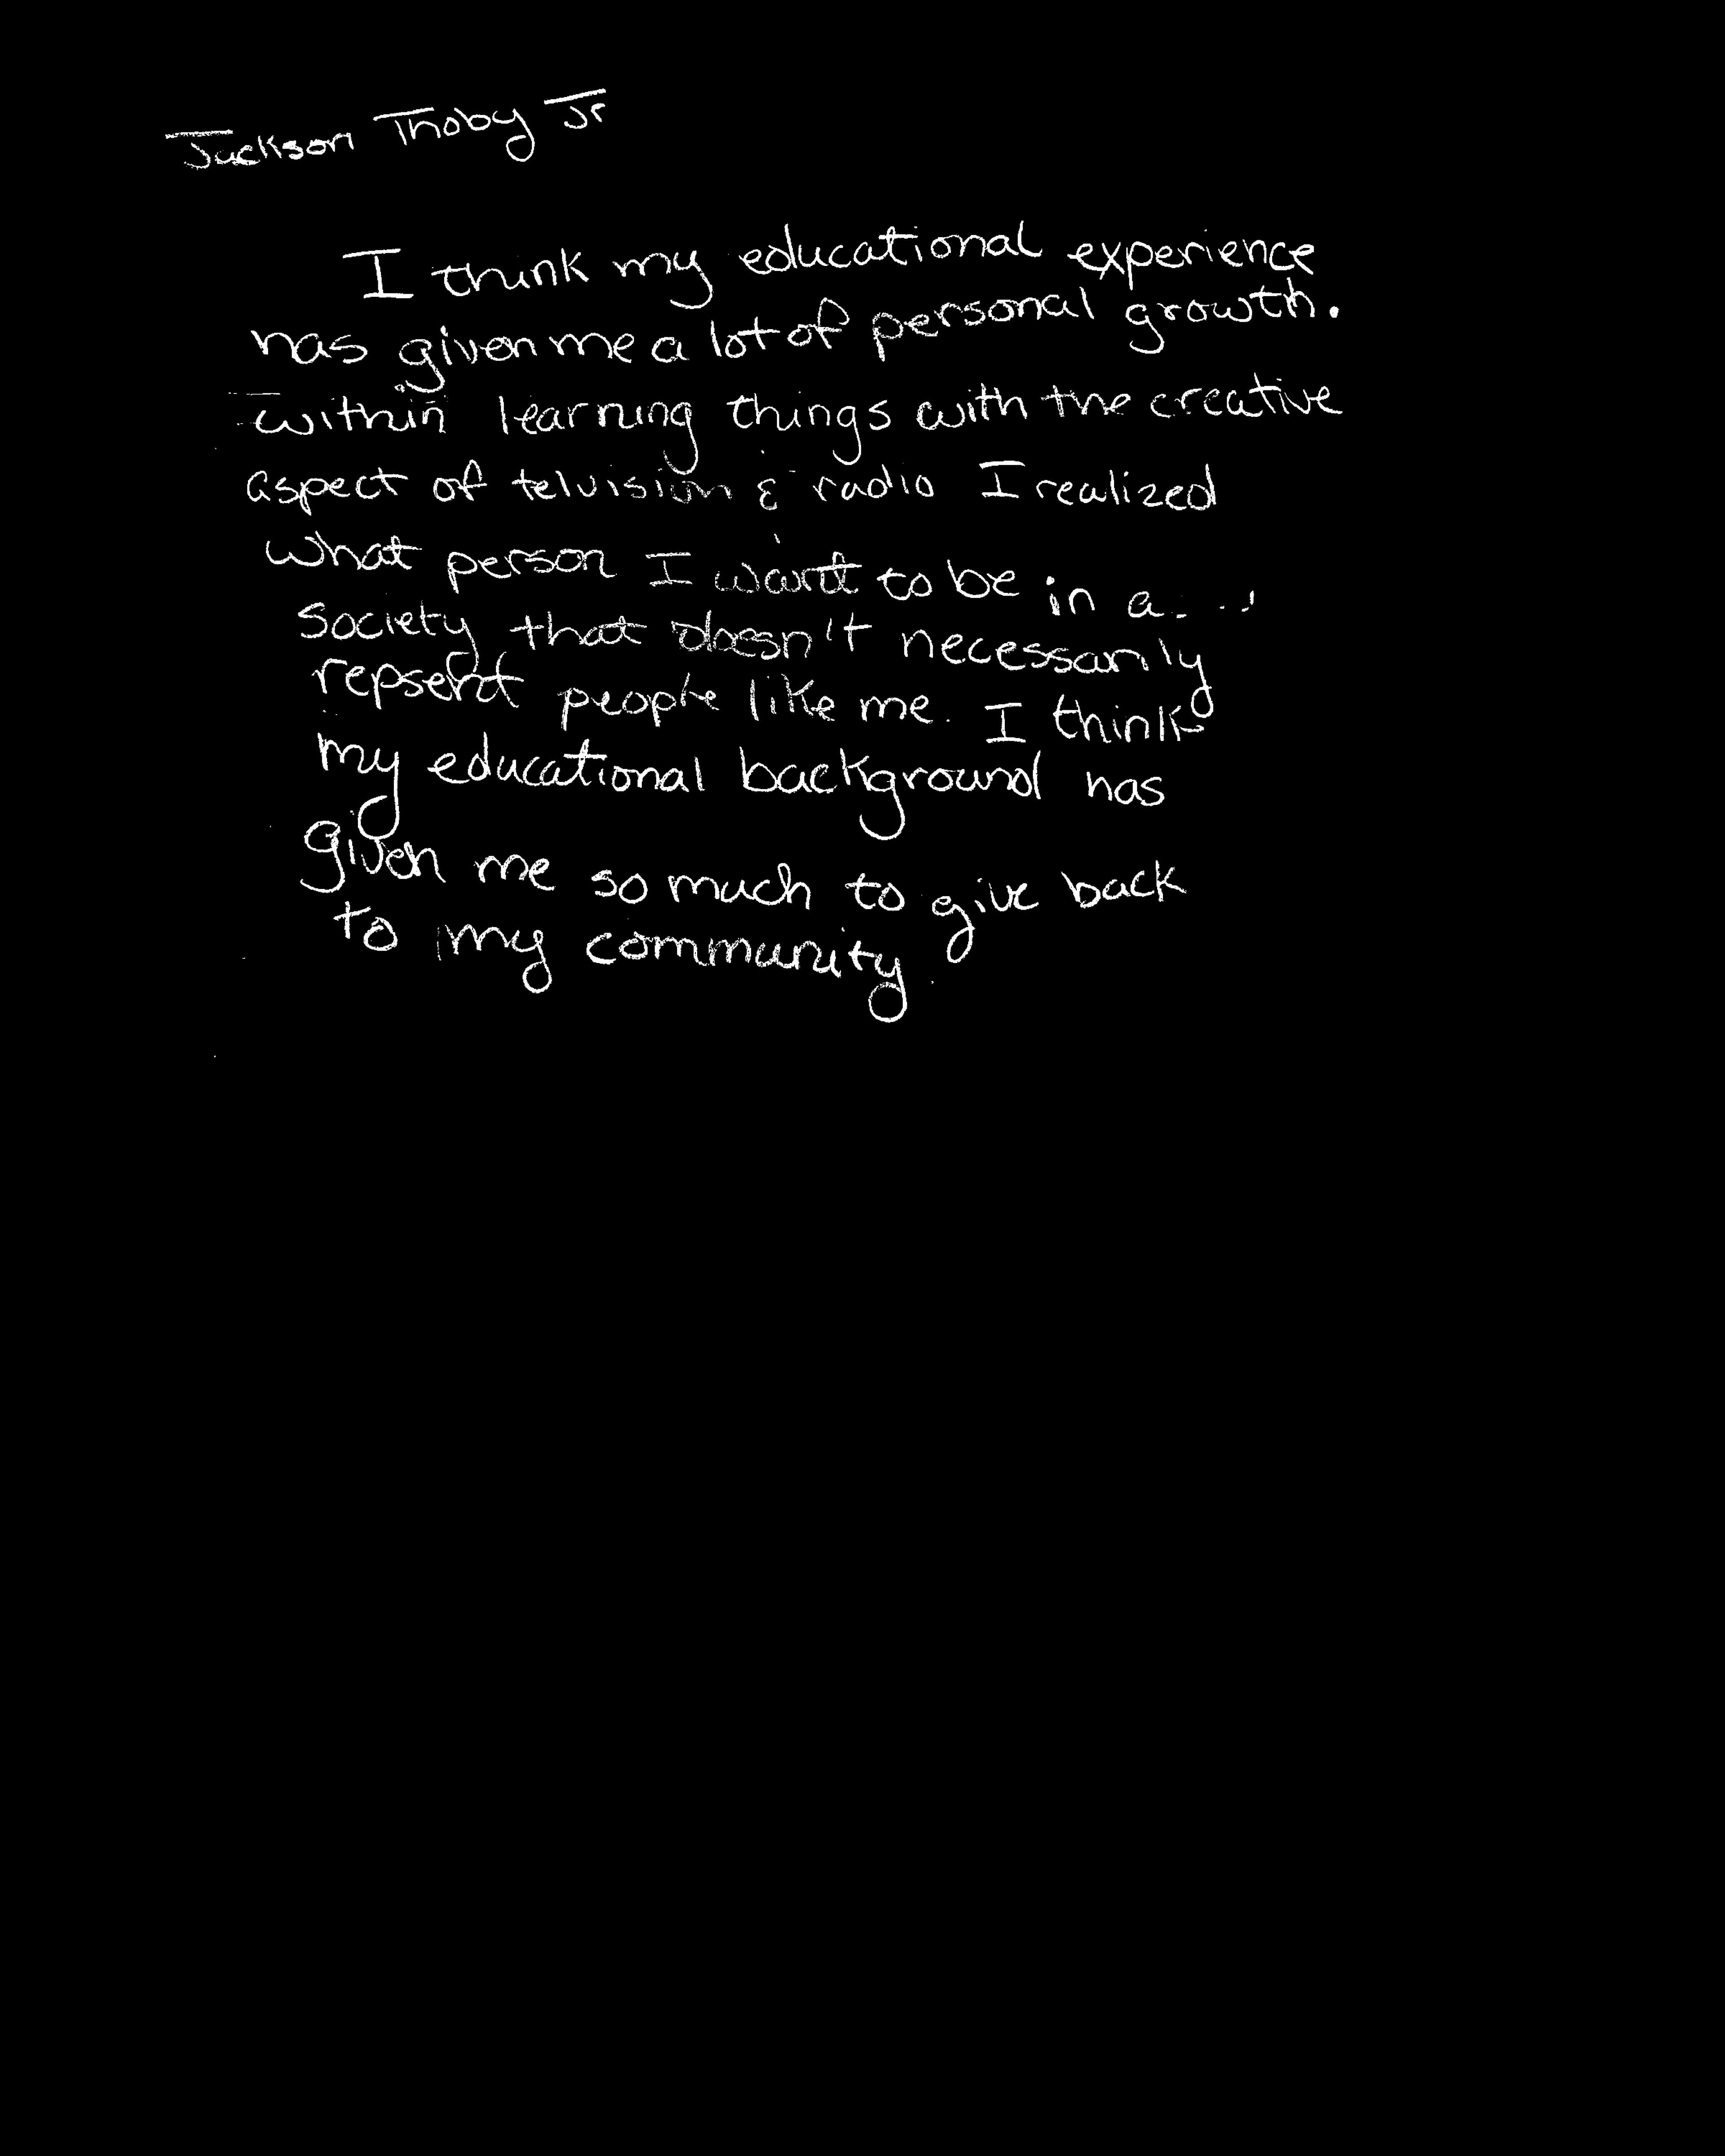 Jackson Thoby Jr
I think my educational experience
has given me a lot of personal growth.
within learning things with the creative
aspect of telvision & radio I realized
what person I want to be in a
society that doesn't necessarily
repsent people like me. I think
my educational background has
given me so much to give back
to my community.